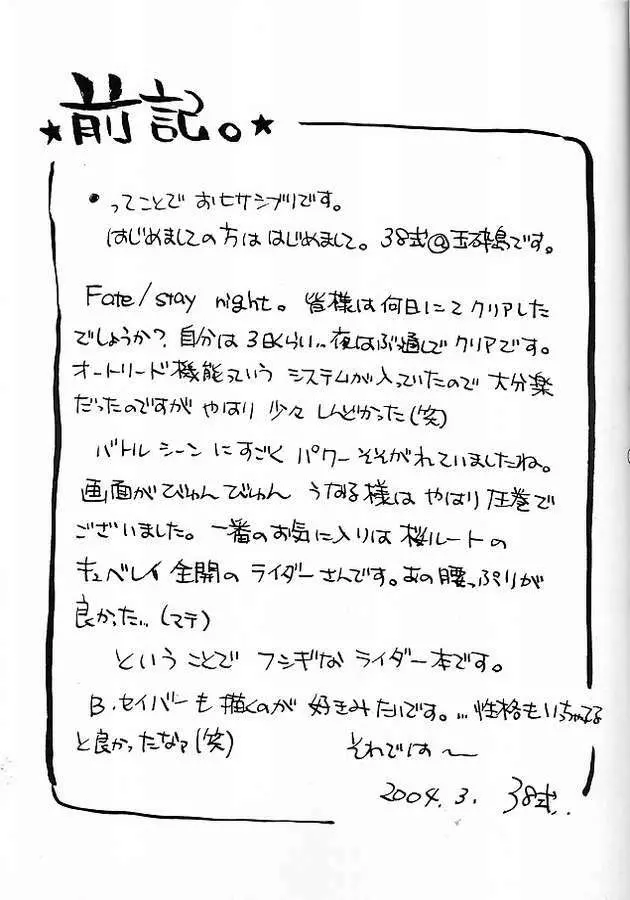 ★前記。★
・ってことで おヒサシブリです。
はじめましての方は はじめまして。38式@玉砕島です。
Fate/stay night。皆様は何日にて クリアした
でしょうか? 自分は3日くらい… 夜はぶっ通しで クリアです。
オートリード機能っていう システムが入っていたので 大分楽
だったのですが やはり 少々 しんどかった(笑)
バトルシーン にすごく パワー そそがれていましたね。
画面がびゅんびゅん うなる様は やはり圧巻で
ございました。一番のお気に入りは 桜ルートの
キュベレイ 全開の ライダーさんです。あの腰っぷりが
良かった… (マテ)
という ことで フシギな ライダー本です。
B.セイバーも 描くのが 好きみたいです。…性格もいっちゃってる
と良かったなァ(笑) それでは〜
2004.3. 38式.